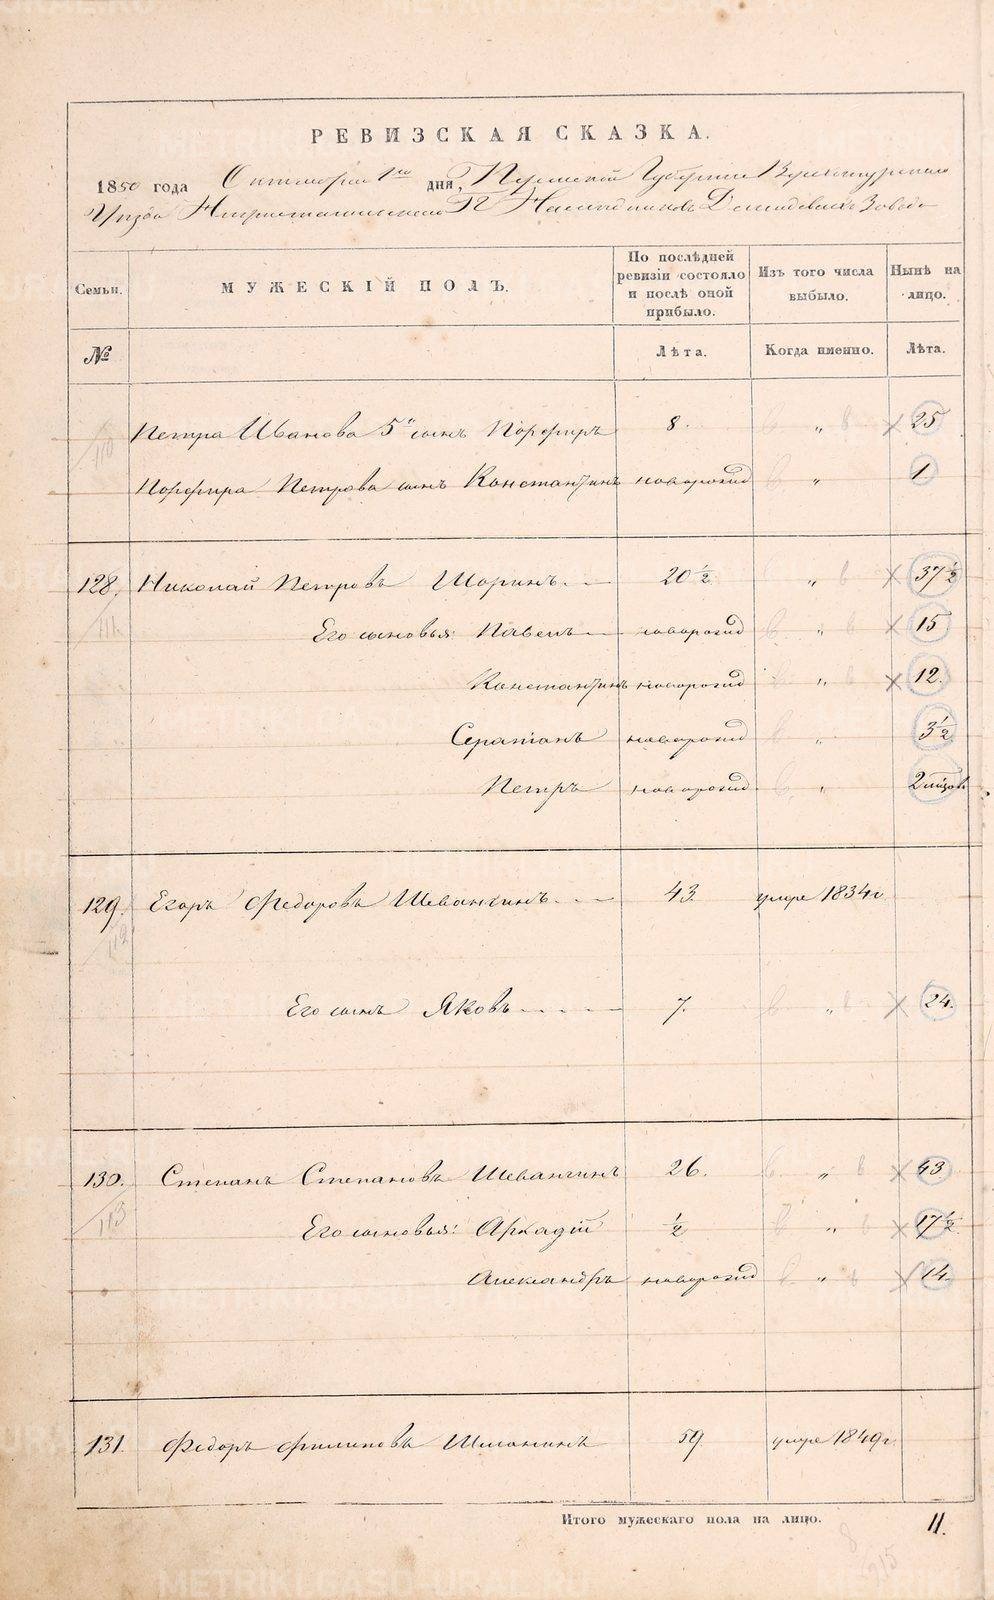 РЕВИЗСКАЯ СКАЗКА.
1850 года Октября 1го дня, Пермской Губернии Верхотурскаго
Уѣзда Наслѣдниковъ Демидовыхъ Завода
Семьи. МУЖЕСКІЙ ПОЛЪ. По послѣдней ревизіи состояло и послѣ оной прибыло. Изъ того числа выбыло. Нынѣ на лицо.
№ Лѣта. Когда именно. Лѣта.
110 Петра Иванова 5й сынъ Порфиръ 8. „ 25
Порфира Петрова сынъ Константинъ новорожд „ 1.
128. Николай Петровъ Шоринъ 20 ½ „ 37 ½
111. Его сыновья: Павелъ новорожд „ 15
Константинъ новорожд „ 12.
новорожд „ 3 ½
Петръ новорожд „ 2 мѣсяцов
129. Егоръ Федоровъ 43. умре 1834г
112
Его сынъ Яковъ 7. „ 24.
130. Степанъ Степановъ 26. „ 43
113 Его сыновья: Аркадій ½ „ 17 ½
Александръ новорожд „ 14
131. Федоръ Филиповъ 59. умре 1849г.
Итого мужескаго пола на лицо. 11.
METRIKI.GASO-URAL.RU